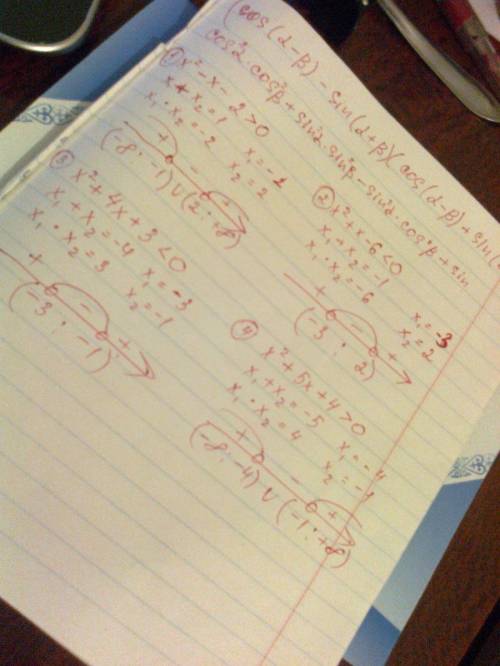 (cos(α-β) - sin(α+β)(cos(α-β) + sin(
cos²α·cos²β + sin²α·sin²β - sin²α·cos²β + sin
① x² - x - 2 > 0
x + x₂ = 1
x₁ · x₂ = -2
x₁ = -1
x₂ = 2
+ - +
(-∞; -1) ∪ (2; +∞)
② x² + x - 6 < 0
x₁ + x₂ = -1
x₁ · x₂ = -6
x₁ = -3
x₂ = 2
+ - +
(-3 ; 2)
③ x² + 4x + 3 < 0
x₁ + x₂ = -4
x₁ · x₂ = 3
x₁ = -3
x₂ = -1
+ - +
(-3 ; -1)
④ x² + 5x + 4 > 0
x₁ + x₂ = -5
x₁ · x₂ = 4
x₁ = -4
x₂ = -1
+ - +
(-∞; -4) ∪ (-1; +∞)